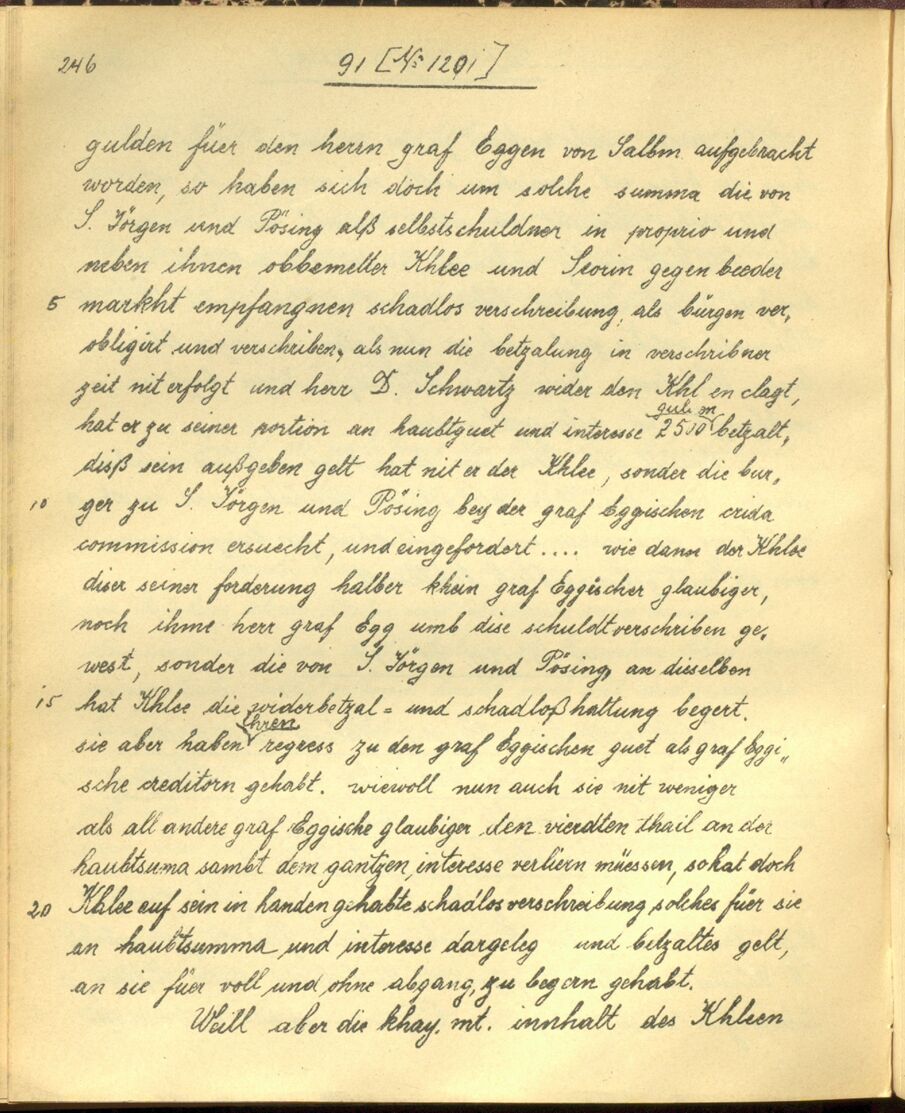 246
91 [№ 1201]
gulden füer den herrn graf Eggen von Salbm aufgebracht
worden, so haben sich doch um solche summa die von
S. Jörgen und Pösing alß selbstschuldner in proprio und
neben ihnen obbemelter Khlee und Scorin gegen beeder
5 markht empfangnen schadlos verschreibung, als bürgen ver„
obligirt und verschriben, als nun die betzalung in verschribner
zeit nit erfolgt und herr D. Schwartz wider den Khlen clagt,
gul. m
hat er zu seiner portion an haubtguet und interesse 2500 betzalt,
disß sein außgeben gelt hat nit er der Khlee, sonder die bur„
10 ger zu S. Jörgen und Pösing bey der graf Eggischen crida
commission ersuecht, und eingefordert .... wie dann der Khlee
diser seiner forderung halber khein graf Eggischer glaubiger,
noch ihme herr graf Egg umb dise schuldt verschriben ge„
west, sonder die von S. Jörgen und Pösing, an dieselben
15 hat Khlee die widerbetzal = und schadloßhaltung begert.
ihren
sie aber haben regress zu den graf Eggischen guet als graf Eggi„
sche creditorn gehabt. wiewoll nun auch sie nit weniger
als all andere graf Eggische glaubiger den vierdten thail an der
haubtsuma sambt dem gantzen interesse verliern müessen, so hat doch
20 Khlee auf sein in handen gehabte schadlos verschreibung solches füer sie
an haubtsumma und interesse dargeleg und betzaltes gelt,
an sie füer voll und ohne abgang, zu begern gehabt.
Weill aber die khay. mt. innhalt des Khleen